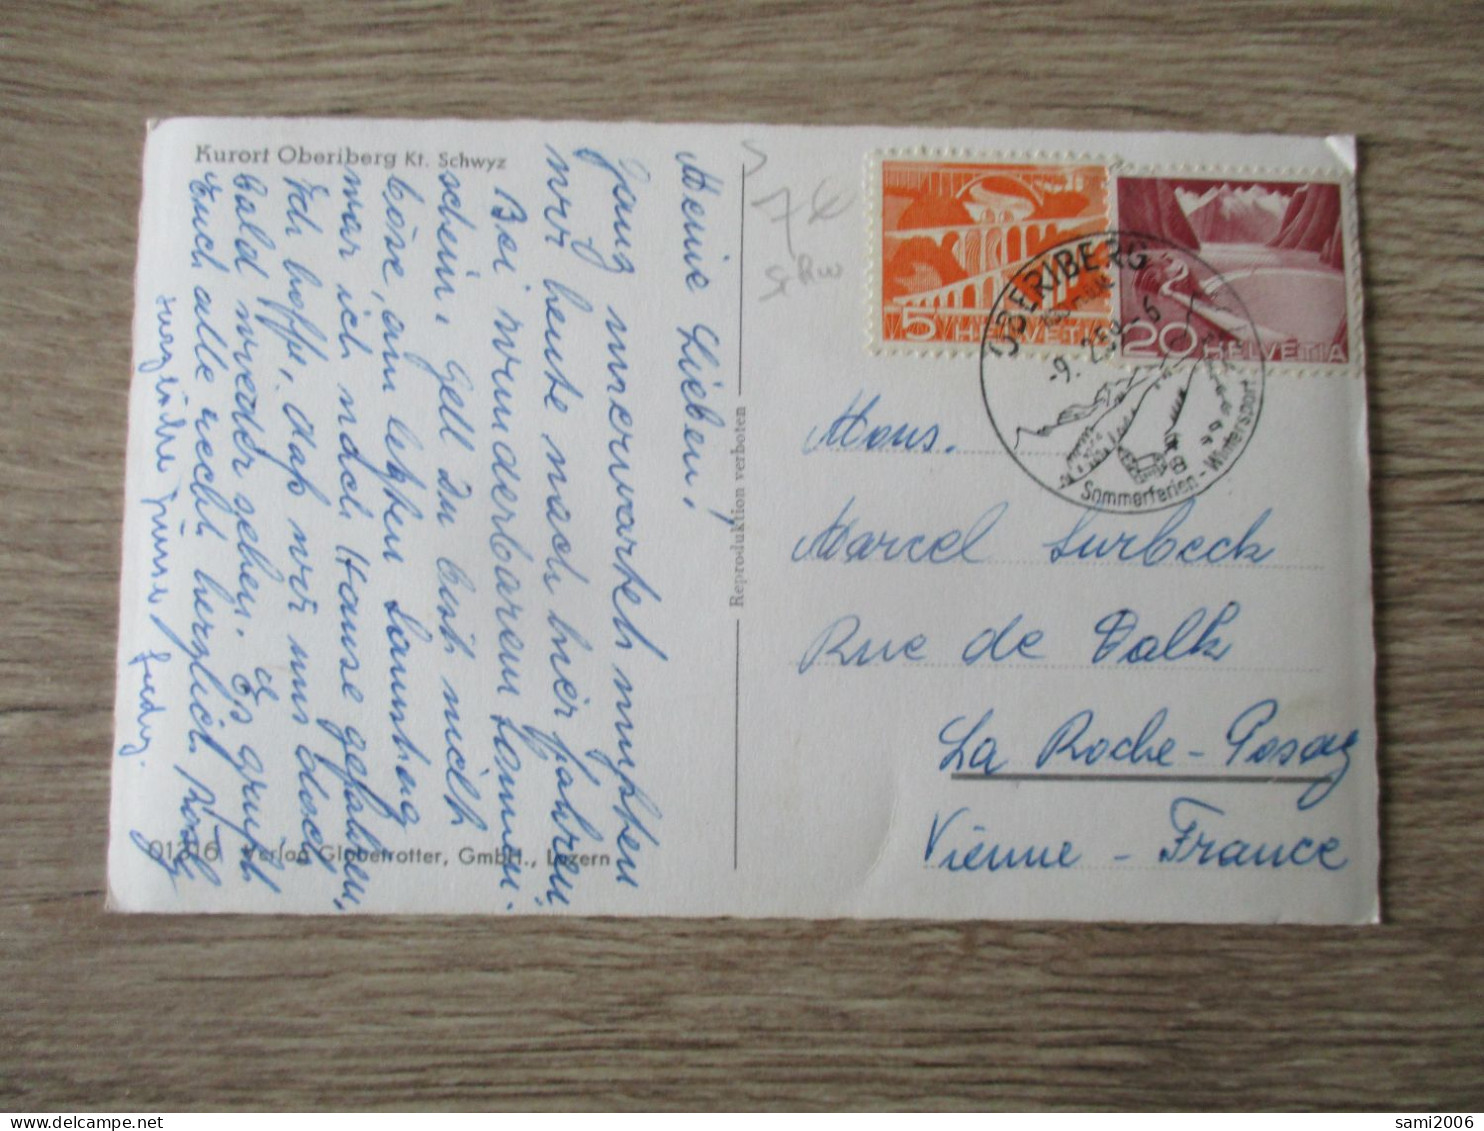 Kurort Oberiberg Kt. Schwyz
Meine Lieben!
Ganz unerwartet mußten
wir heute nach hier fahren.
Bei wunderbarem Sonnen-
schein, gell Du bist nicht
böse, am letzten Samstag
war ich nach Hause gefahren,
Ich hoffe, daß wir uns doch
bald wieder sehen. Es grüßt
Euch alle recht herzlich Rosly
01316 Verlag Globetrotter, GmbH., Luzern
Reproduktion verboten
5 HELVETIA
20 HELVETIA
OBERIBERG
-9. 2.59.-6
Sommerferien - Wintersport
Mons.
Marcel Surbeck
Rue de Talk
La Roche-Posay
Vienne - France
sami2006